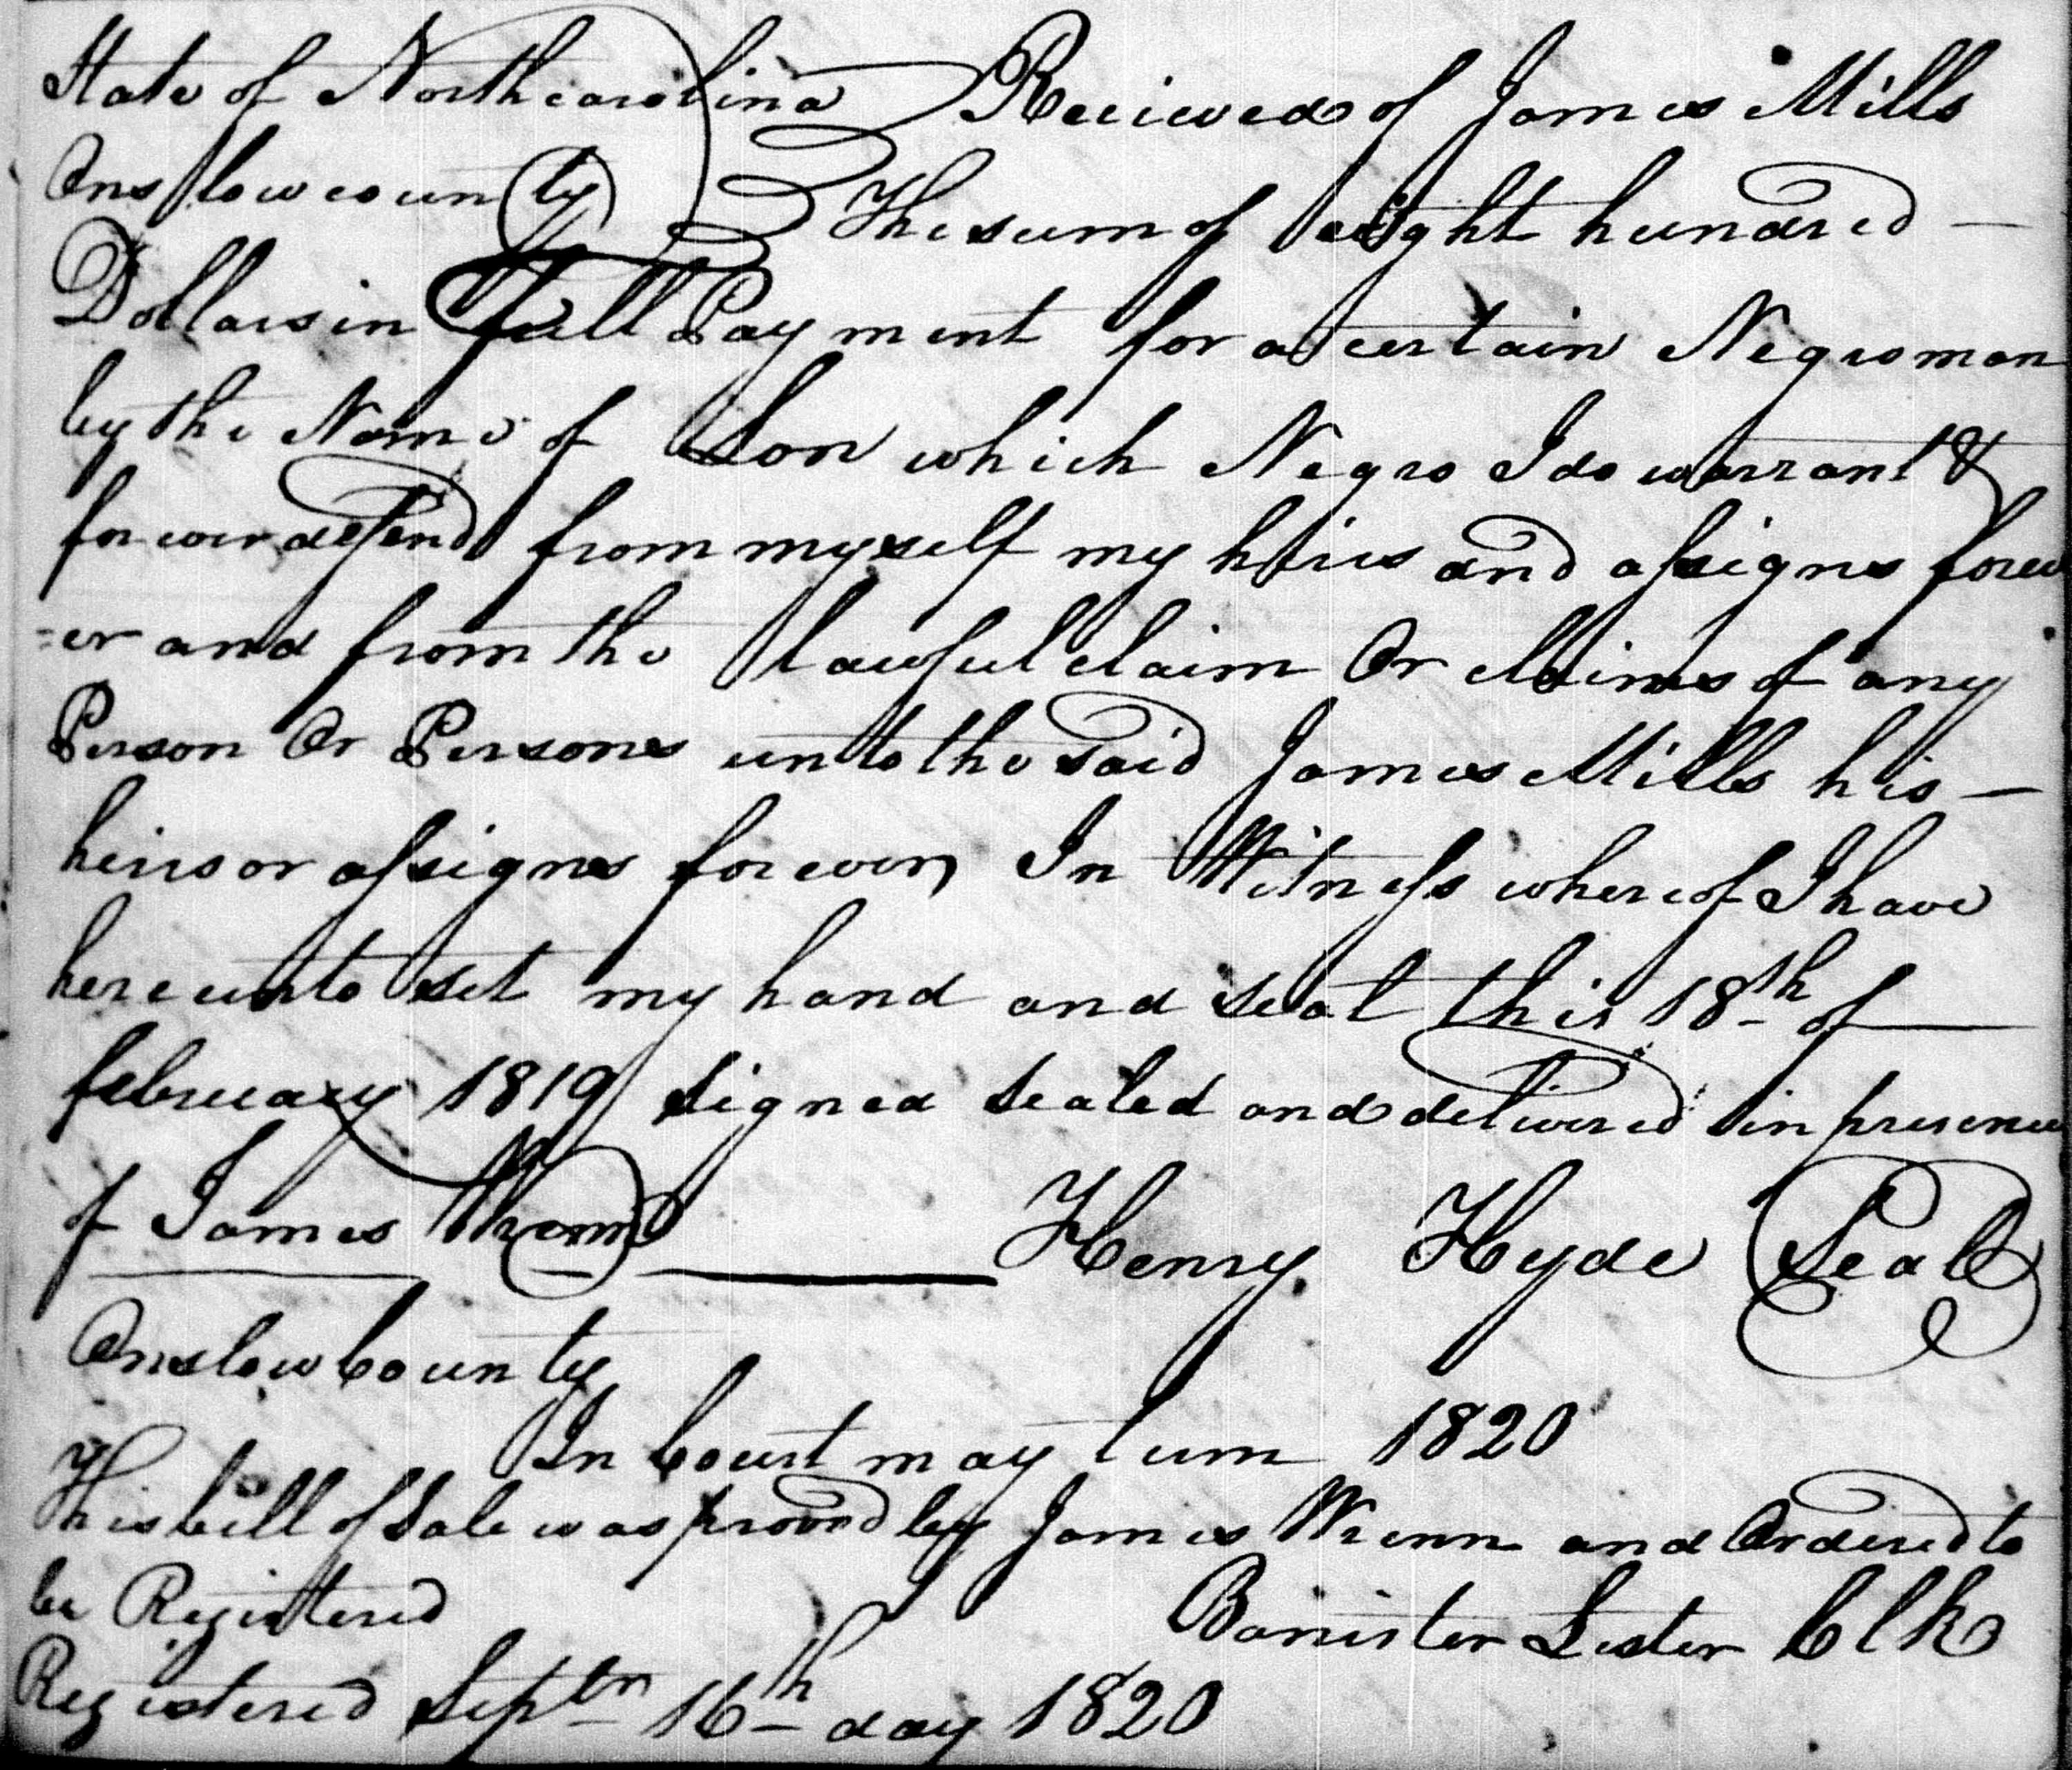 State of Northcarolina Recieved of James Mills
Onslow county The sum of eight hundred —
Dollars in full Payment for a certain Negro man
by the Name of Lon which Negro I do warrant &
forever defend from myself my heirs and assigns forev
=er and from the lawful claim Or claims of any
Person Or Persons unto the said James Mills his —
heirs or assigns forever, In Witness whereof I have
hereunto set my hand and seal this 18th of —
february 1819 signed sealed and delivered in presence
of James Henry Hyde Seal
Onslow County
In Court may term 1820
This bill of Sale was proved by James Wrenn and Ordered to
be Registered
Banister Lester Clk
Registered Septr 16th day 1820